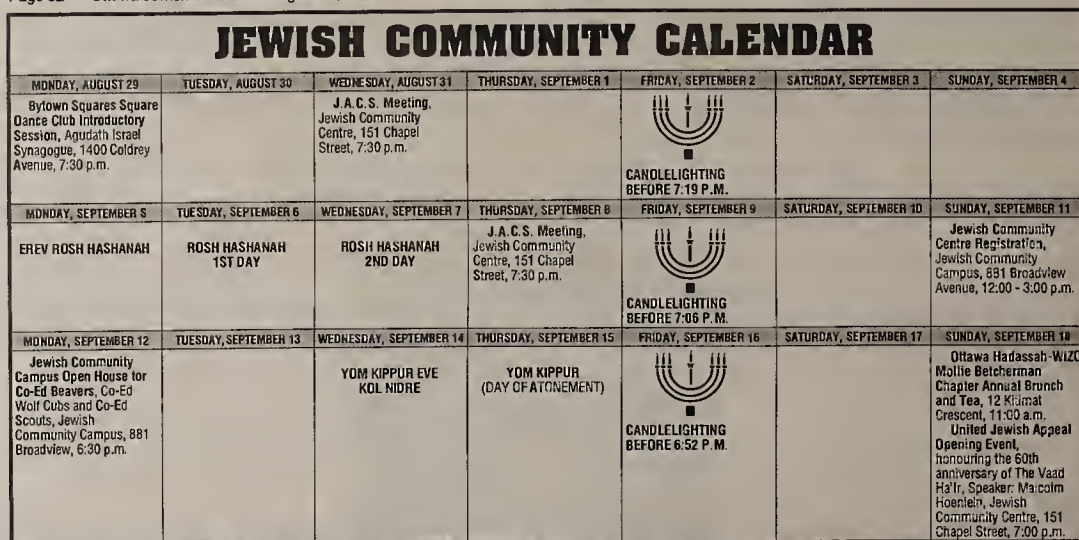 JEWISH COMMUNITY CALENDAR
MONDAY, AUGUST 29
TUESDAY, AUGUST 30
WEDNESDAY, AUGUST 31
THURSDAY, SEPTEMBER 1
FRIDAY, SEPTEMBER 2
SATURDAY, SEPTEMBER 3
SUNDAY, SEPTEMBER 4
Bytown Squares Square
Dance Club Introductory
Session, Agudath Israel
Synagogue, 1400 Coldrey
Avenue, 7:30 p.m.
J.A.C.S. Meeting,
Jewish Community
Centre, 151 Chapel
Street, 7:30 p.m.
CANDLELIGHTING
BEFORE 7:19 P.M.
MONDAY, SEPTEMBER 5
TUESDAY, SEPTEMBER 6
WEDNESDAY, SEPTEMBER 7
THURSDAY, SEPTEMBER 8
FRIDAY, SEPTEMBER 9
SATURDAY, SEPTEMBER 10
SUNDAY, SEPTEMBER 11
EREV ROSH HASHANAH
ROSH HASHANAH
1ST DAY
ROSH HASHANAH
2ND DAY
J.A.C.S. Meeting,
Jewish Community
Centre, 151 Chapel
Street, 7:30 p.m.
CANDLELIGHTING
BEFORE 7:06 P.M.
Jewish Community
Centre Registration,
Jewish Community
Campus, 881 Broadview
Avenue, 12:00 - 3:00 p.m.
MONDAY, SEPTEMBER 12
TUESDAY, SEPTEMBER 13
WEDNESDAY, SEPTEMBER 14
THURSDAY, SEPTEMBER 15
FRIDAY, SEPTEMBER 16
SATURDAY, SEPTEMBER 17
SUNDAY, SEPTEMBER 18
Jewish Community
Campus Open House for
Co-Ed Beavers, Co-Ed
Wolf Cubs and Co-Ed
Scouts, Jewish
Community Campus, 881
Broadview, 6:30 p.m.
YOM KIPPUR EVE
KOL NIDRE
YOM KIPPUR
(DAY OF ATONEMENT)
CANDLELIGHTING
BEFORE 6:52 P.M.
Ottawa Hadassah-WIZO
Mollie Betcherman
Chapter Annual Brunch
and Tea, 12 Kitimat
Crescent, 11:00 a.m.
United Jewish Appeal
Opening Event,
honouring the 60th
anniversary of The Vaad
Ha'Ir, Speaker: Malcolm
Hoenlein, Jewish
Community Centre, 151
Chapel Street, 7:00 p.m.